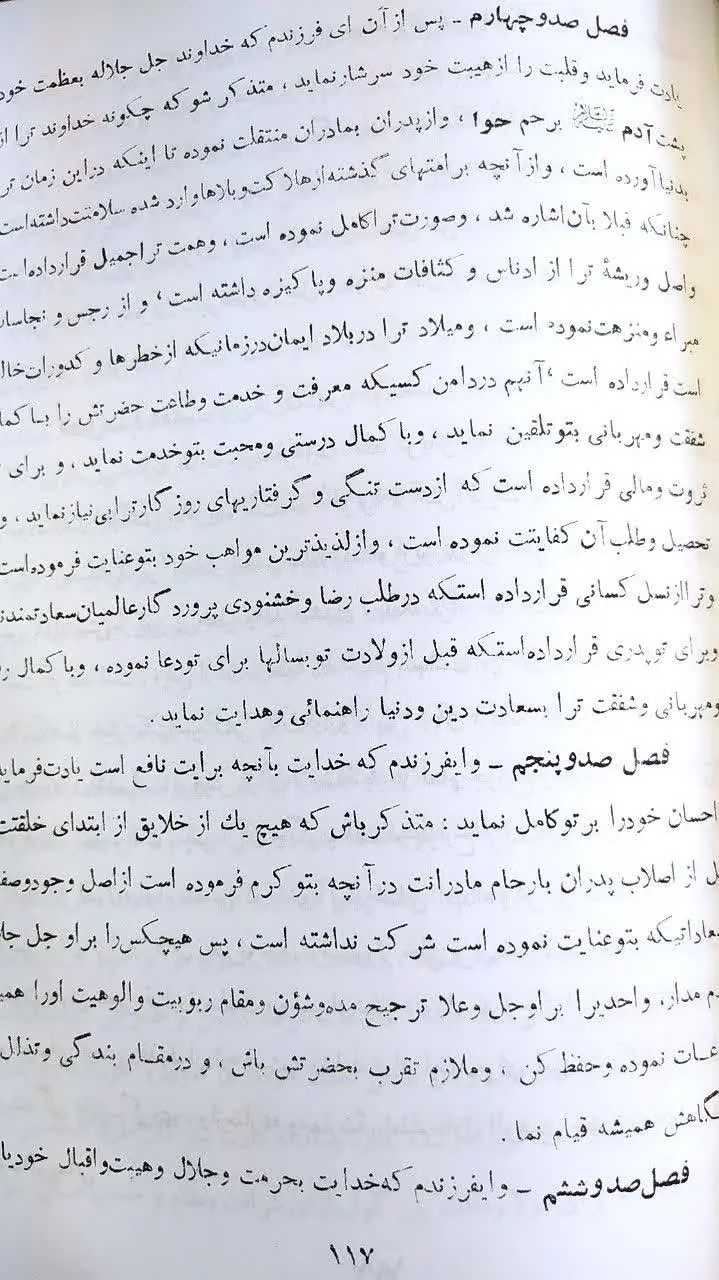 فصل صدوچهارم ـ پس از آن ای فرزندم که خداوند جل جلاله بعظمت خود
یادت فرماید وقلبت را ازهیبت خود سرشار نماید ، متذکر شو که چگونه خداوند ترا از
پشت آدم علیه‌السلام برحم حوا ، وازپدران بمادران منتقلت نموده تا اینکه دراین زمان تر
بدنیا آورده است ، وازآنچه بر امتهای گذشته ازهلاکت وبلاها وارد شده سلامتت داشته است
چنانکه قبلا بآن اشاره شد ، وصورت ترا کامل نموده است ، وهمت ترا جمیل قرارداده است
واصل وریشۀ ترا از ادناس و کثافات منزه وپاکیزه داشته است ، و از رجس و نجاسات
مبراء ومنزهت نموده است ، ومیلاد ترا دربلاد ایمان درزمانیکه ازخطرها و کدورات خال
است قرارداده است ، آنهم دردامن کسیکه معرفت و خدمت وطاعت حضرتش را بـا کما
شفقت ومهربانی بتوتلقین نماید ، وبا کمال درستی ومحبت بتوخدمت نماید ، و برای
ثروت ومالی قرارداده است که ازدست تنگی و گرفتاریهای روزگارترا بی‌نیاز نماید ، و
تحصیل وطلب آن کفایتت نموده است ، وازلذیذترین مواهب خود بتوعنایت فرموده است
وترا ازنسل کسانی قرارداده استکه درطلب رضا وخشنودی پروردگارعالمیان سعادتمند
وبرای توپدری قرارداده استکه قبل ازولادت توبسالها برای تودعا نموده ، وبا کمال
ومهربانی وشفقت ترا بسعادت دین ودنیا راهنمائی وهدایت نماید .
فصل صدوپنجم ـ وایفرزندم که خدایت بآنچه برایت نافع است یادت فرماید
احسان خودرا برتوکامل نماید : متذکرباش که هیچ یك از خلایق از ابتدای خلقت
از اصلاب پدران بارحام مادرانت درآنچه بتو کرم فرموده است ازاصل وجودوصف
سعاداتیکه بتوعنایت نموده است شرکت نداشته است ، پس هیچکس‌را براو جل جلا
مدار، واحدیرا براوجل وعلا ترجیح مده وشؤن ومقام ربوبیت والوهیت اورا همی
نموده وحفظ کن ، وملازم تقرب بحضرتش باش ، و درمقـام بندگی وتذلل
همیشه قیام نما .
فصل صدوششم ـ وایفرزندم که خدایت بحرمت وجلال وهیبت واقبال خود
۱۱۷